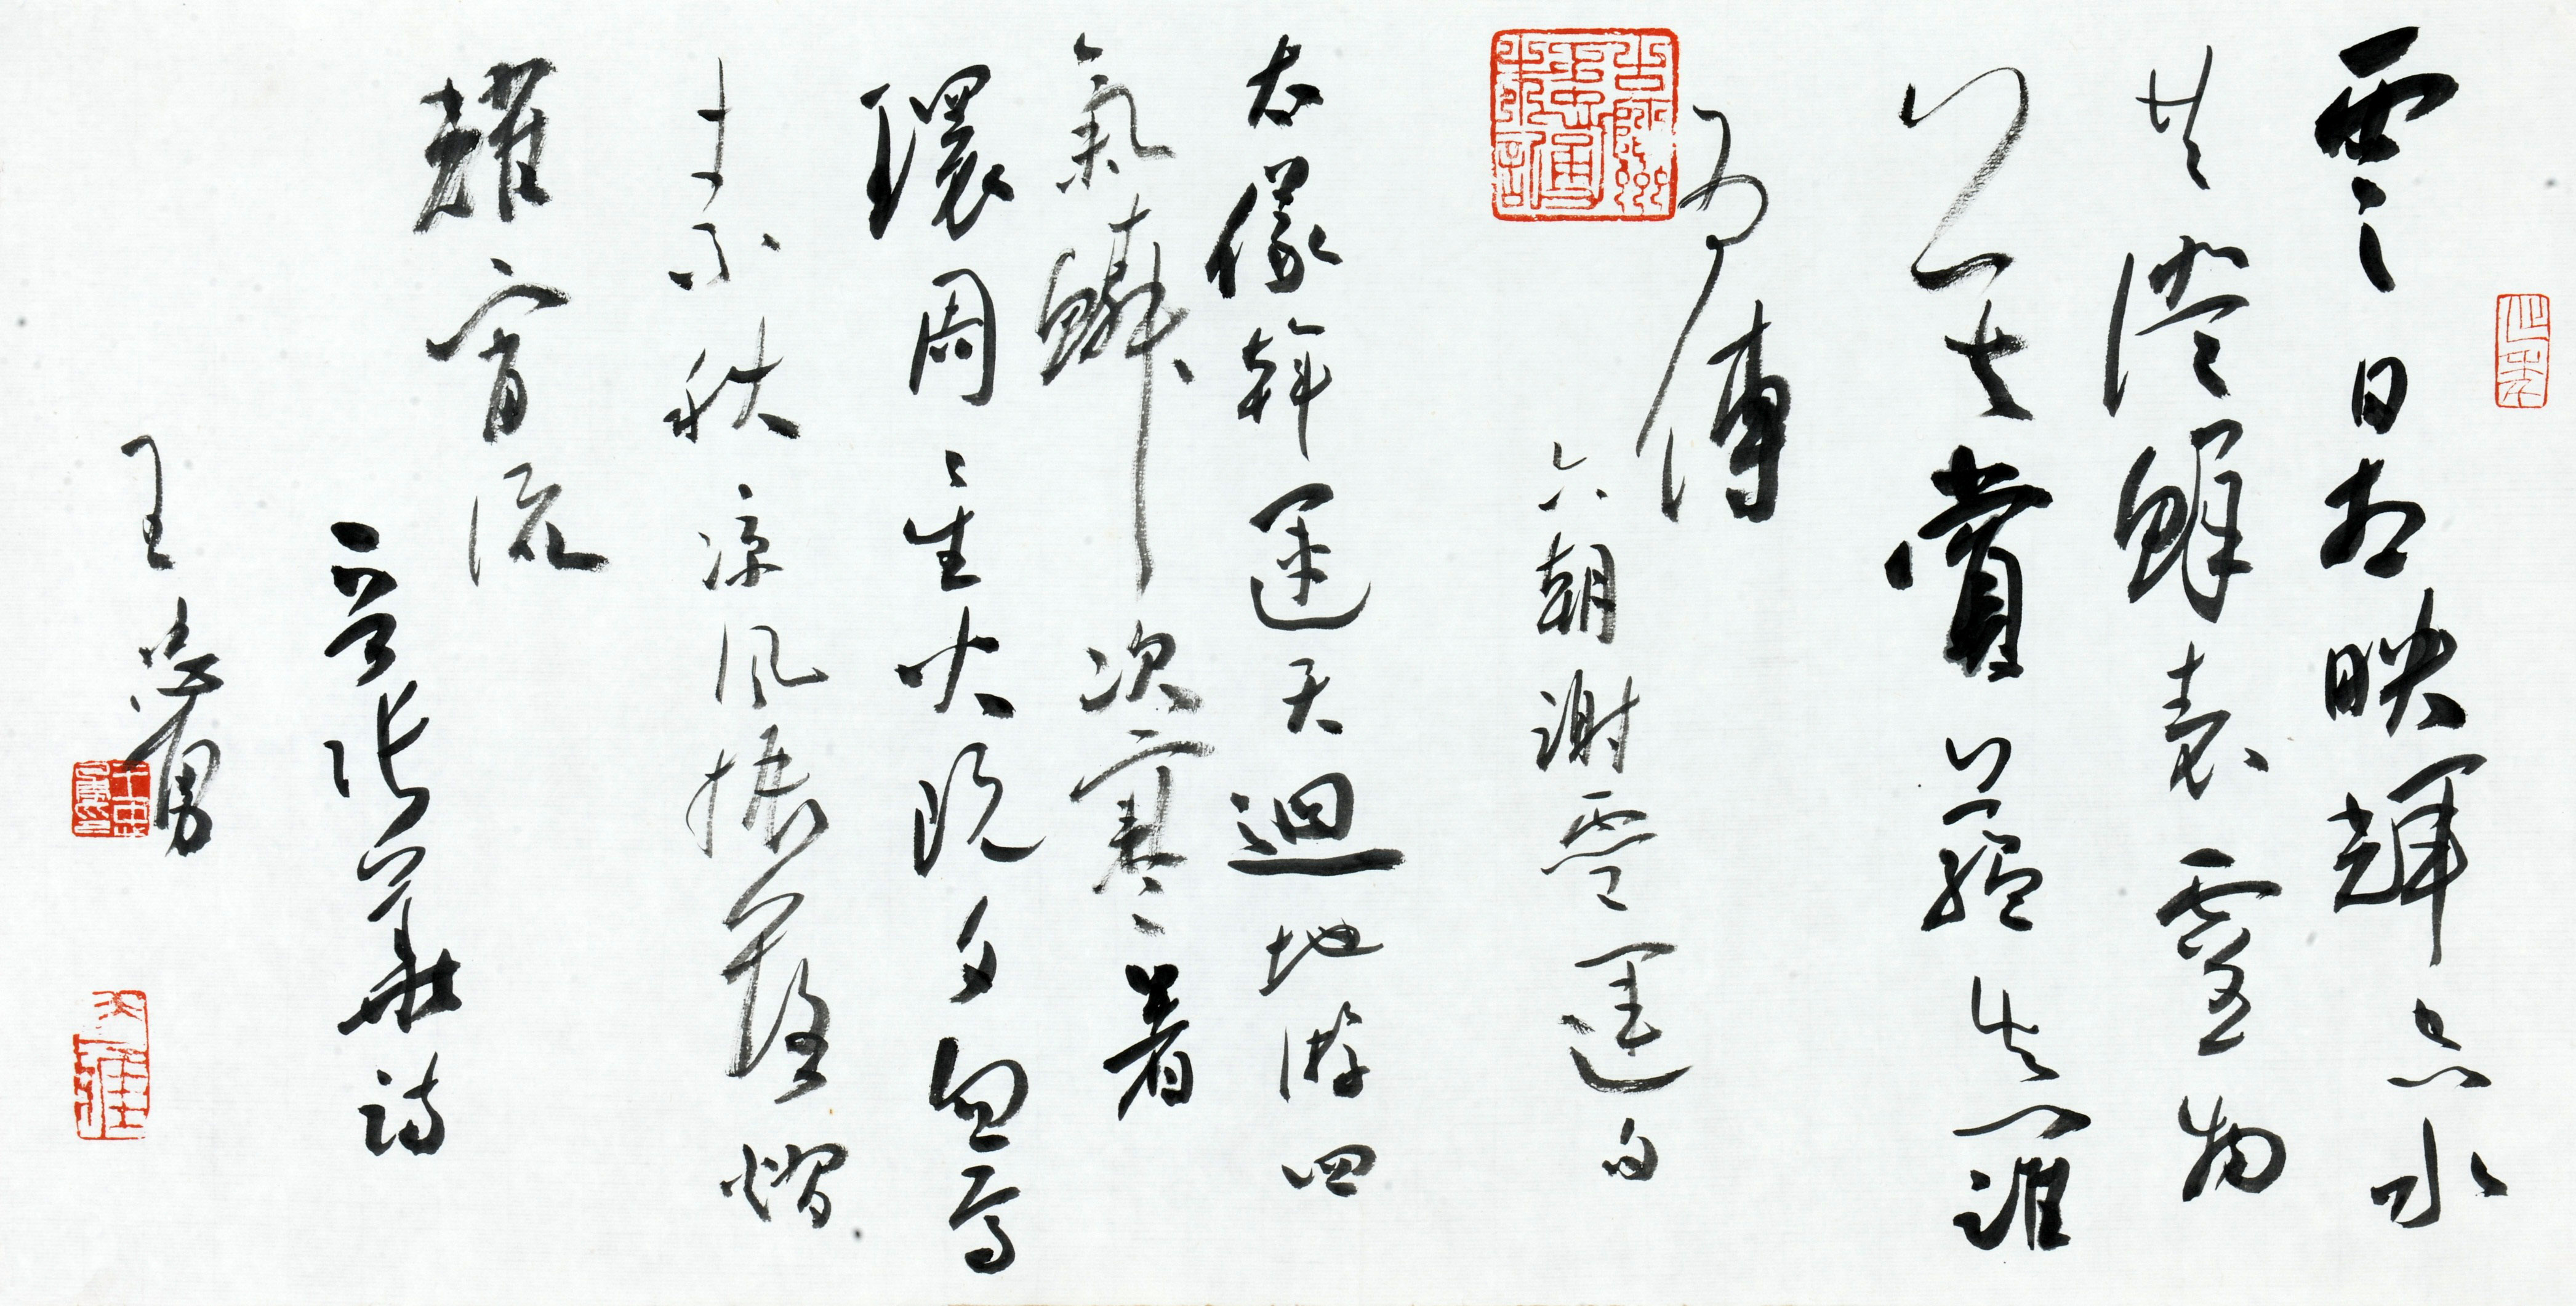 雲日相映輝空水
共澄鮮表靈物
莫賞蘊真誰
為傳
六朝謝靈運句
大儀斡運天迴地游四
氣鱗次寒暑
環周星火既夕忽焉
素秋涼風振落熠
耀宵流
晉張華詩
王忠勇